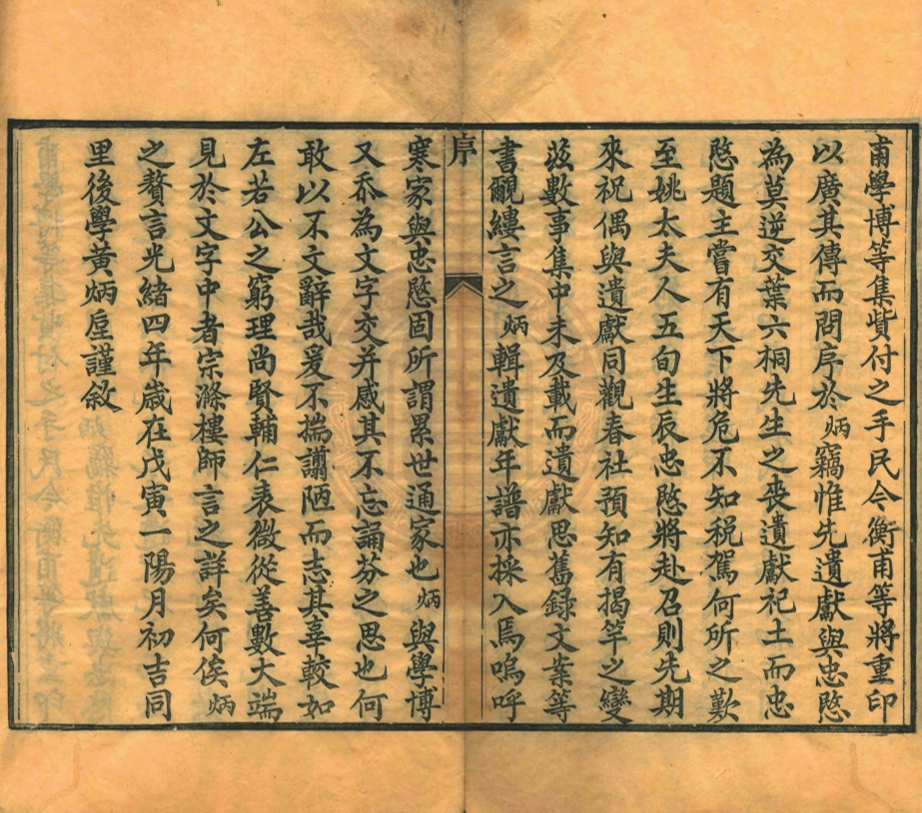 甫學博等集貲付之手民今衡甫等將重印
以廣其傳而問序於炳竊惟先遺獻與忠愍
為莫逆交葉六桐先生之喪遺獻祀土而忠
愍題主嘗有天下將危不知稅駕何所之歎
至姚太夫人五旬生辰忠愍將赴召則先期
來祝偶與遺獻同觀春社預知有揭竿之變
茲數事集中未及載而遺獻思舊録文案等
書覼縷言之炳輯遺獻年譜亦採入焉嗚呼
序
寒家與忠愍固所謂累世通家也炳與學博
又忝為文字交并感其不忘誦芬之思也何
敢以不文辭哉爰不揣譾陋而志其辜較如
左若公之窮理尚賢輔仁表微從善數大端
見於文字中者宗滌樓師言之詳矣何俟炳
之贅言光緒四年歲在戊寅一陽月初吉同
里後學黃炳垕謹敘